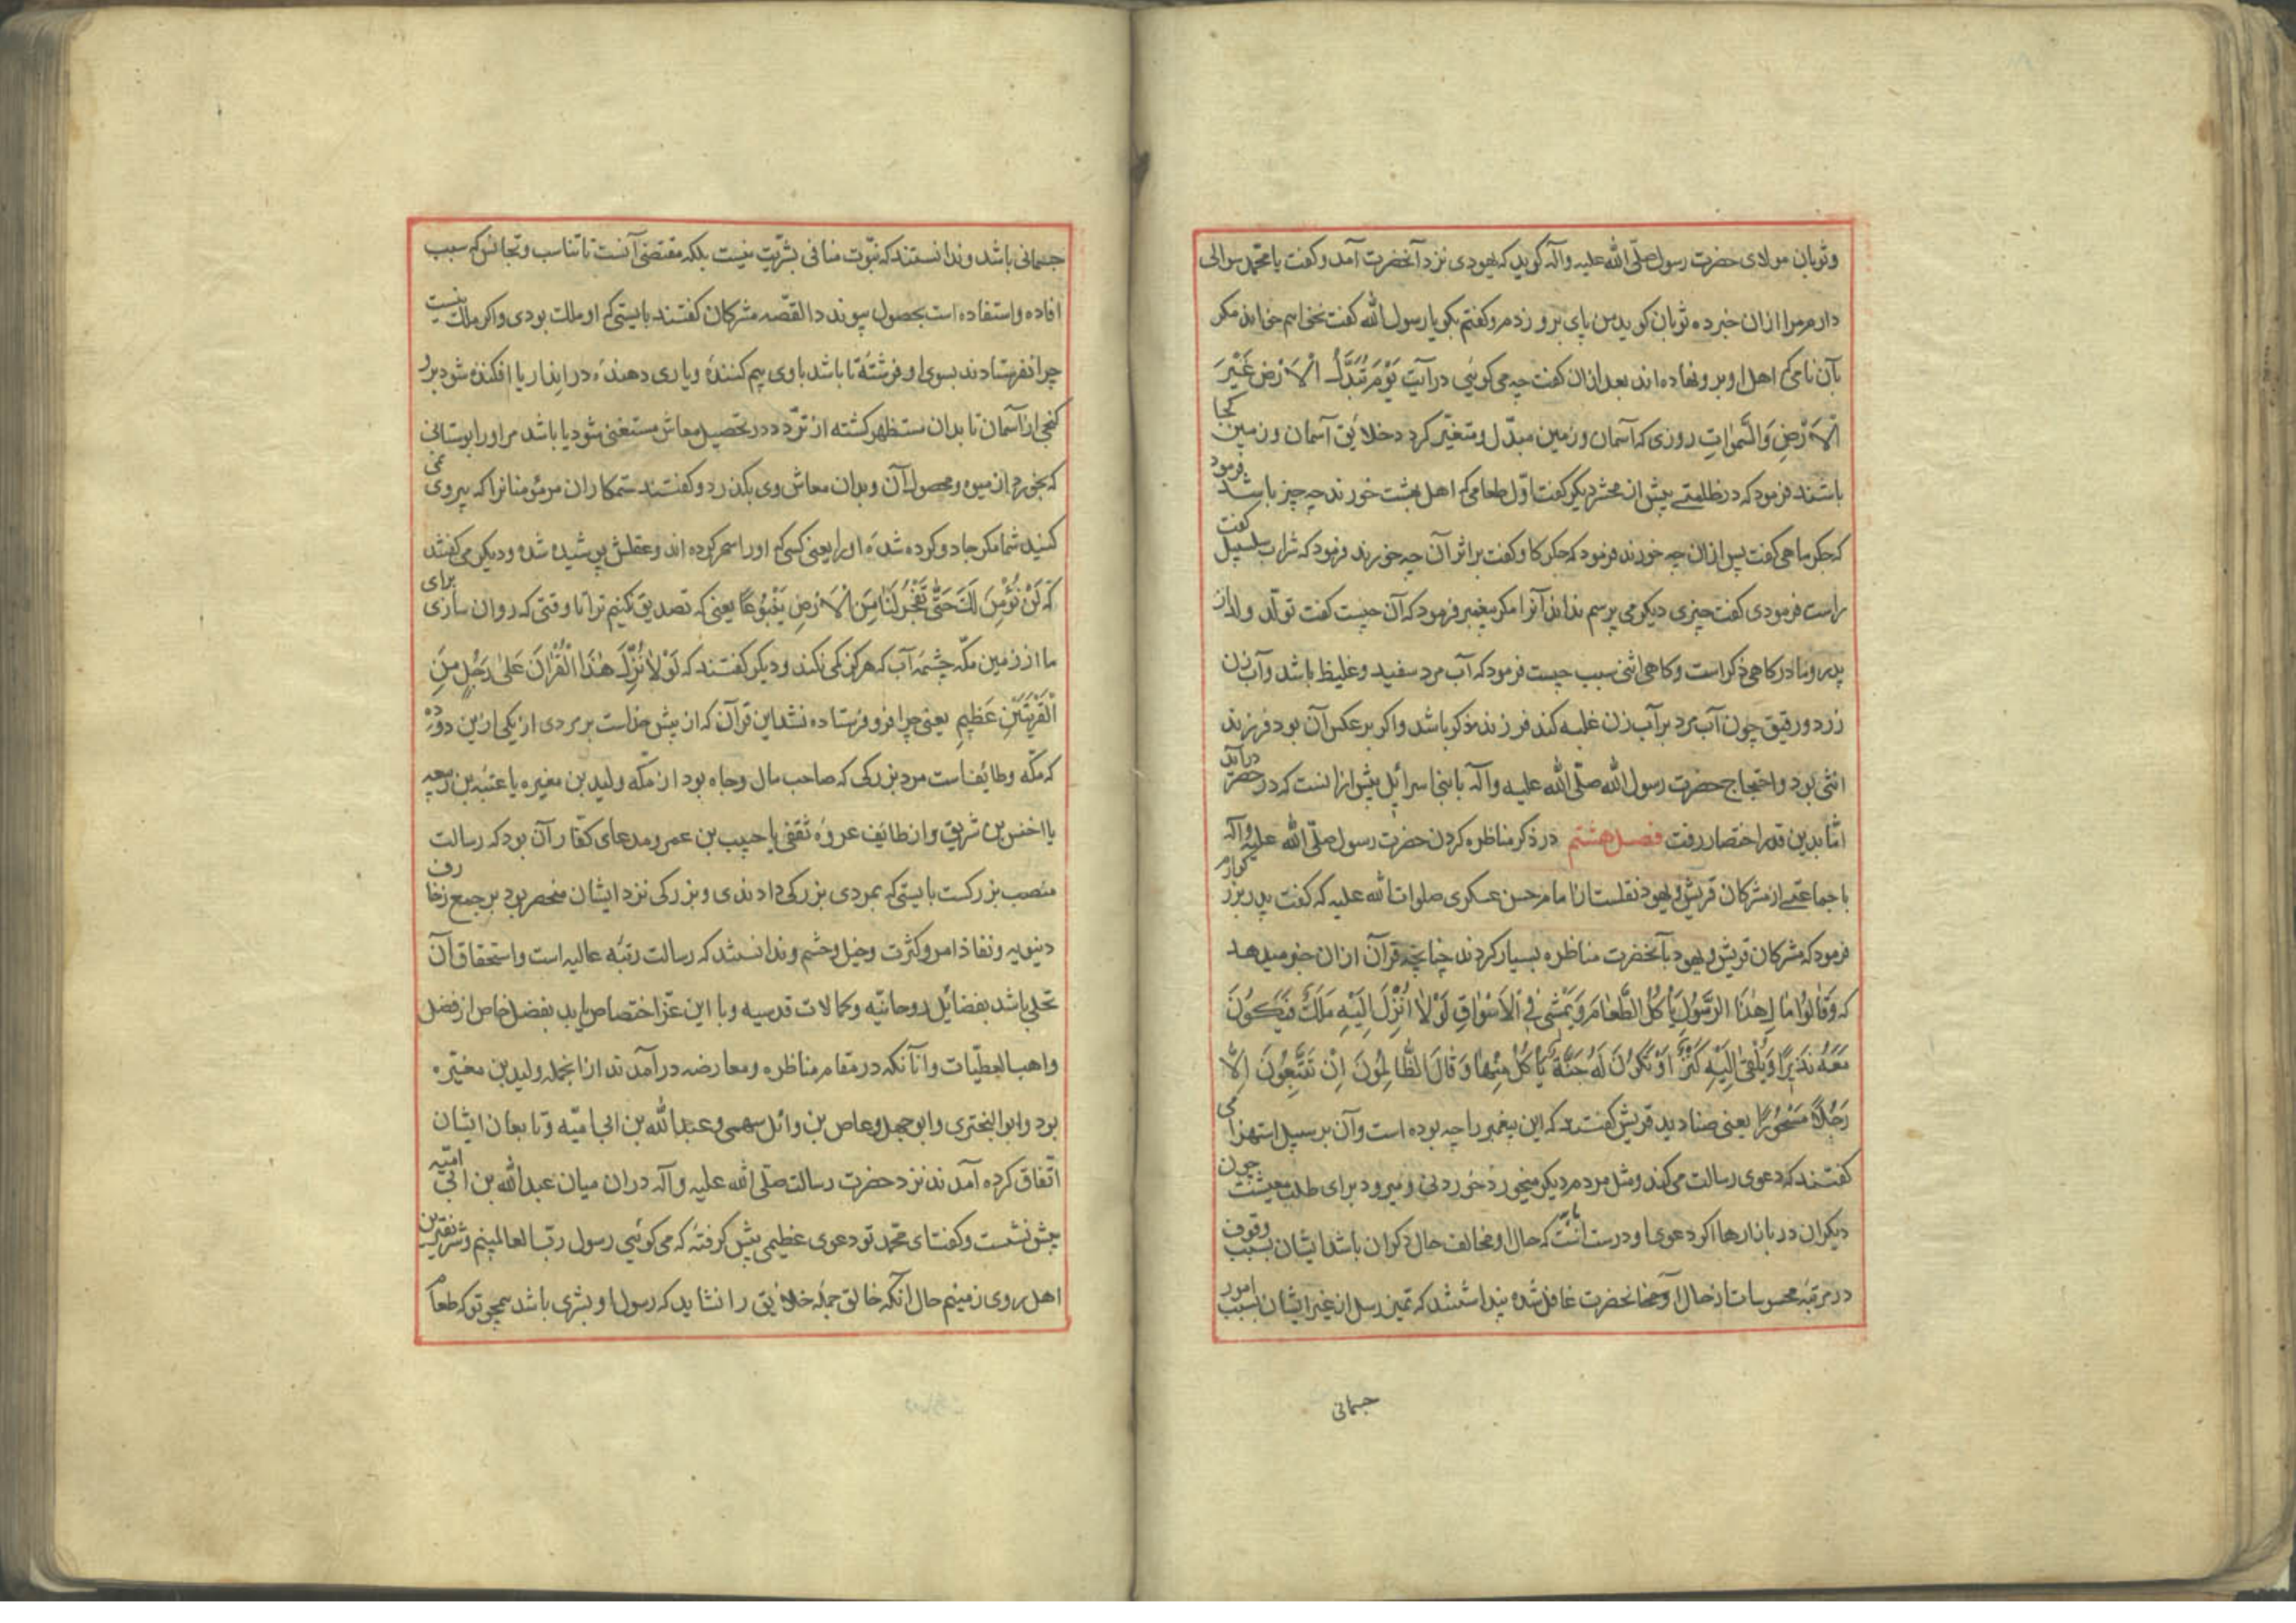 وثوبان مولای حضرت رسول صلّی الله علیه وآله کوید که یهودی نزد آنحضرت آمد وکفت یا محمّد سوالی
دارم مرا ازان خبر ده ثوبان کوید من پای برو زدم وکفتم بکو یا رسول الله کفت نمی خواهم خواند مکر
بآن نامی که اهل او برو نهاده اند بعد ازان کفت چه می کوئی در آیت یَوْمَ تُبَدَّلُ الْاَرْضُ غَیْرَ
الْاَرْضِ وَالسَّمٰوٰاتِ روزی که آسمان وزمین مبدّل ومتغیّر کردد خلایق آسمان وزمین کجا
باشند فرمود که در ظلمتے پیش از محشر دیکر کفت اوّل طعامی که اهل بهشت خورند چه چیز باشد فرمود
که جکر ماهی کفت پس ازان چه خورند فرمود که جکر کاو کفت بر اثر آن چه خورند فرمود که شراب سلسبیل کفت
راست فرمودی کفت چیزی دیکر می پرسم نداند آنرا مکر پیغمبر فرمود که آن چیست کفت تولّد ولد از
پدر ومادر کاهی ذکر است وکاهی انثی سبب چیست فرمود که آب مرد سفید وغلیظ باشد وآب زن
زرد ورقیق چون آب مرد بر آب زن غلبه کند فرزند مذکر باشد واکر بر عکس آن بود فرزند
انثی بود واحتجاج حضرت رسول الله صلّی الله علیه وآله با بنی اسرائیل بیش ازانست که در حصر درآید
امّا بدین قدر اختصار رفت فصل هشتم در ذکر مناظره کردن حضرت رسول صلّی الله علیه وآله
با جماعتے از مشرکان قریش ویهود نقلست از امام حسن عسکری صلوات الله علیه که کفت پدر بزرکوارم
فرمود که مشرکان قریش ویهود بآنحضرت مناظره بسیار کردند چنانچه قرآن ازان خبر میدهد
که وَقٰالُوا مٰا لِهٰذَا الرَّسُولِ یَأْکُلُ الطَّعٰامَ وَیَمْشی فِی الْاَسْوٰاقِ لَوْلٰا اُنْزِلَ اِلَیْهِ مَلَکٌ فَیَکُونَ
مَعَهُ نَذیرًا وَیُلْقٰی اِلَیْهِ کَنْزٌ اَوْ تَکُونُ لَهُ جَنَّةٌ یَأْکُلُ مِنْهٰا وَقٰالَ الظّٰالِمُونَ اِنْ تَتَّبِعُونَ اِلّٰا
رَجُلًا مَسْحُورًا یعنی صنادید قریش کفتند که این پیغمبر را چه بوده است وآن بر سبیل استهزا می
کفتند که دعوی رسالت می کند ومثل مردم دیکر میخورد خوردنی ومیرود برای طلب معیشت چون
دیکران در بازارها اکر دعوی او درست است باید که حال او مخالف حال دکران باشد ایشان بسبب وقوف
در مرتبه محسوسات از حال آنحضرت غافل شده پنداشتند که تمیز رسل از غیر ایشان بسبب امور
جسمانی
جسمانی باشد وندانستند که نبوّت منافی بشریّت نیست بلکه مقتضی آنست تا تناسب وتجانس که سبب
افاده واستفاده است بحصول پیوندد القصّه مشرکان کفتند بایستی که او ملک بودی واکر ملک نیست
چرا نفرستادند بسوی او فرشتهٔ تا باشد با وی بیم کنندهٔ ویاری دهنده در انذار یا افکنده شود برو
کنجی از آسمان تا بدان مستظهر کشته از تردّد در تحصیل معاش مستغنی شود یا باشد مر اورا بوستانی
که بخورد از میوه ومحصول آن وبدان معاش وی بکذرد وکفتند ستمکاران مر مؤمنانرا که پیروی نمی
کنید شما مکر جادو کرده شدهٔ اورا یعنی کسی که اورا سحر کرده اند وعقلش پوشیده شده ودیکر می کفتند
که لَنْ نُؤْمِنَ لَکَ حَتّٰی تَفْجُرَ لَنٰا مِنَ الْاَرْضِ یَنْبُوعًا یعنی که تصدیق نکنیم ترا تا وقتی که روان سازی برای
ما از زمین مکّه چشمهٔ آب که هرکز کمی نکند ودیکر کفتند که لَوْلٰا نُزِّلَ هٰذَا الْقُرْاٰنُ عَلٰی رَجُلٍ مِنَ
الْقَرْیَتَیْنِ عَظیمٍ یعنی چرا فرو فرستاده نشد این قرآن که از پیش خداست بر مردی از یکی ازین دو ده
که مکّه وطایفست مرد بزرکی که صاحب مال وجاه بود از مکّه ولید بن مغیره یا عتبه بن ربیعه
یا اخنس بن شریق واز طائف عروه ثقفی یا حبیب بن عمرو ومدعای کفّار آن بود که رسالت
منصب بزرکست بایستی که بمردی بزرکی دادندی وبزرکی نزد ایشان منحصر بود بر جمع زخارف
دنیویه ونفاذ امر وکثرت وخیل وحشم وندانستند که رسالت رتبه عالیه است واستحقاق آن
تحلی باشد بفضائل روحانیّه وکمالات قدسیه وبا این عزّ اختصاص یابد بفضل خاص از فضل
واهب العطیّات وانآنکه در مقام مناظره ومعارضه درآمدند ازانجمله ولید بن مغیره
بود وابو البختری وابو جهل وعاص بن وائل سهمی وعبد الله بن ابی امیّه وتابعان ایشان
اتّفاق کرده آمدند نزد حضرت رسالت صلّی الله علیه وآله دران میان عبد الله بن ابی امیّه
پیش نشست وکفت ای محمّد تو دعوی عظیمی پیش کرفتهٔ که می کوئی رسول ربّ العالمینم وشریفترین
اهل روی زمینم حال آنکه خالق جمله خلایق را نشاید که رسول او بشری باشد همچو تو که طعام